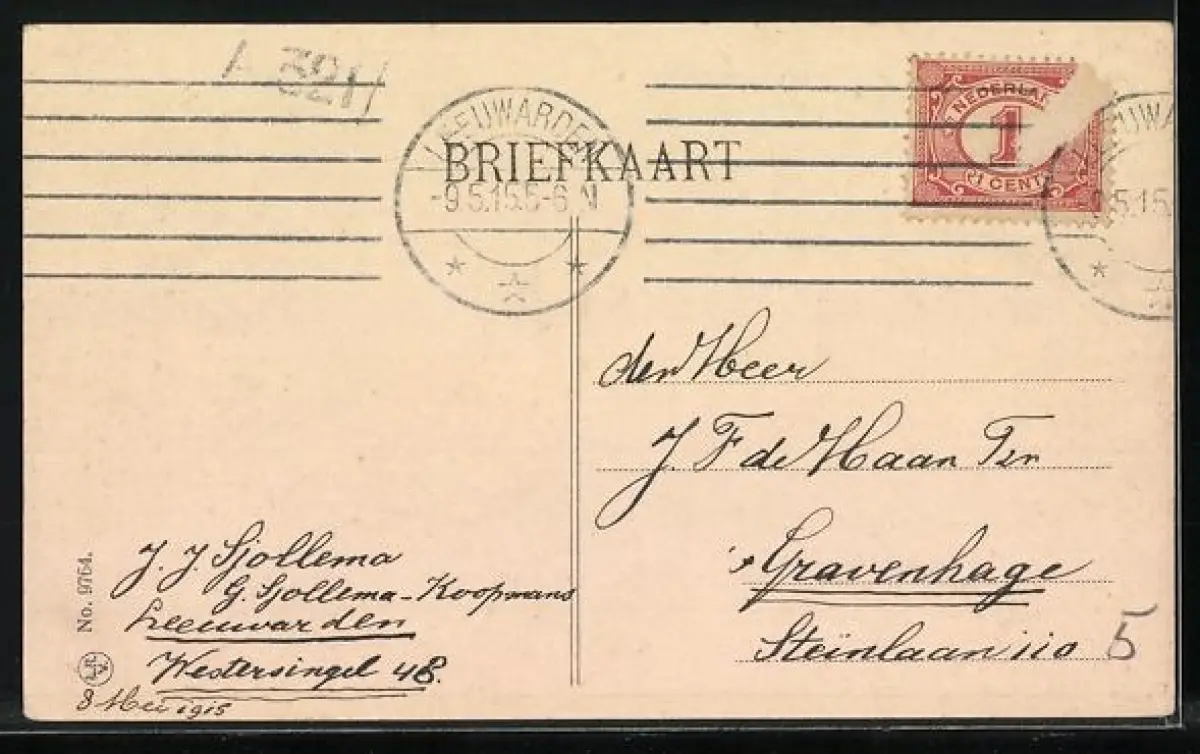 321
LEEUWARDEN
BRIEFKAART
-9.5.15.5-6 N
NEDERLA
1
1 CENT
UWA
5.15.
den Heer
J. F. de Haan Tzn
's Gravenhage
Steinlaan 110
5
J. J. Sjollema
G. Sjollema-Koopmans
Leeuwarden
Westersingel 48.
8 Mei 1915
No. 9764.